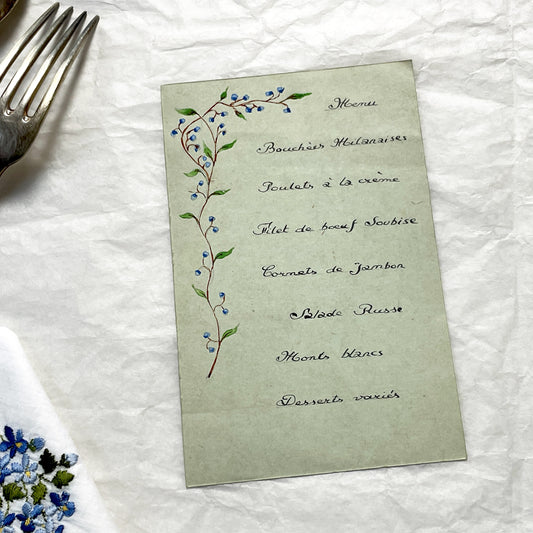 Menu
Bouchées Milanaises
Poulets à la crème
Filet de bœuf Soubise
Cornets de Jambon
Salade Russe
Monts blancs
Desserts variés